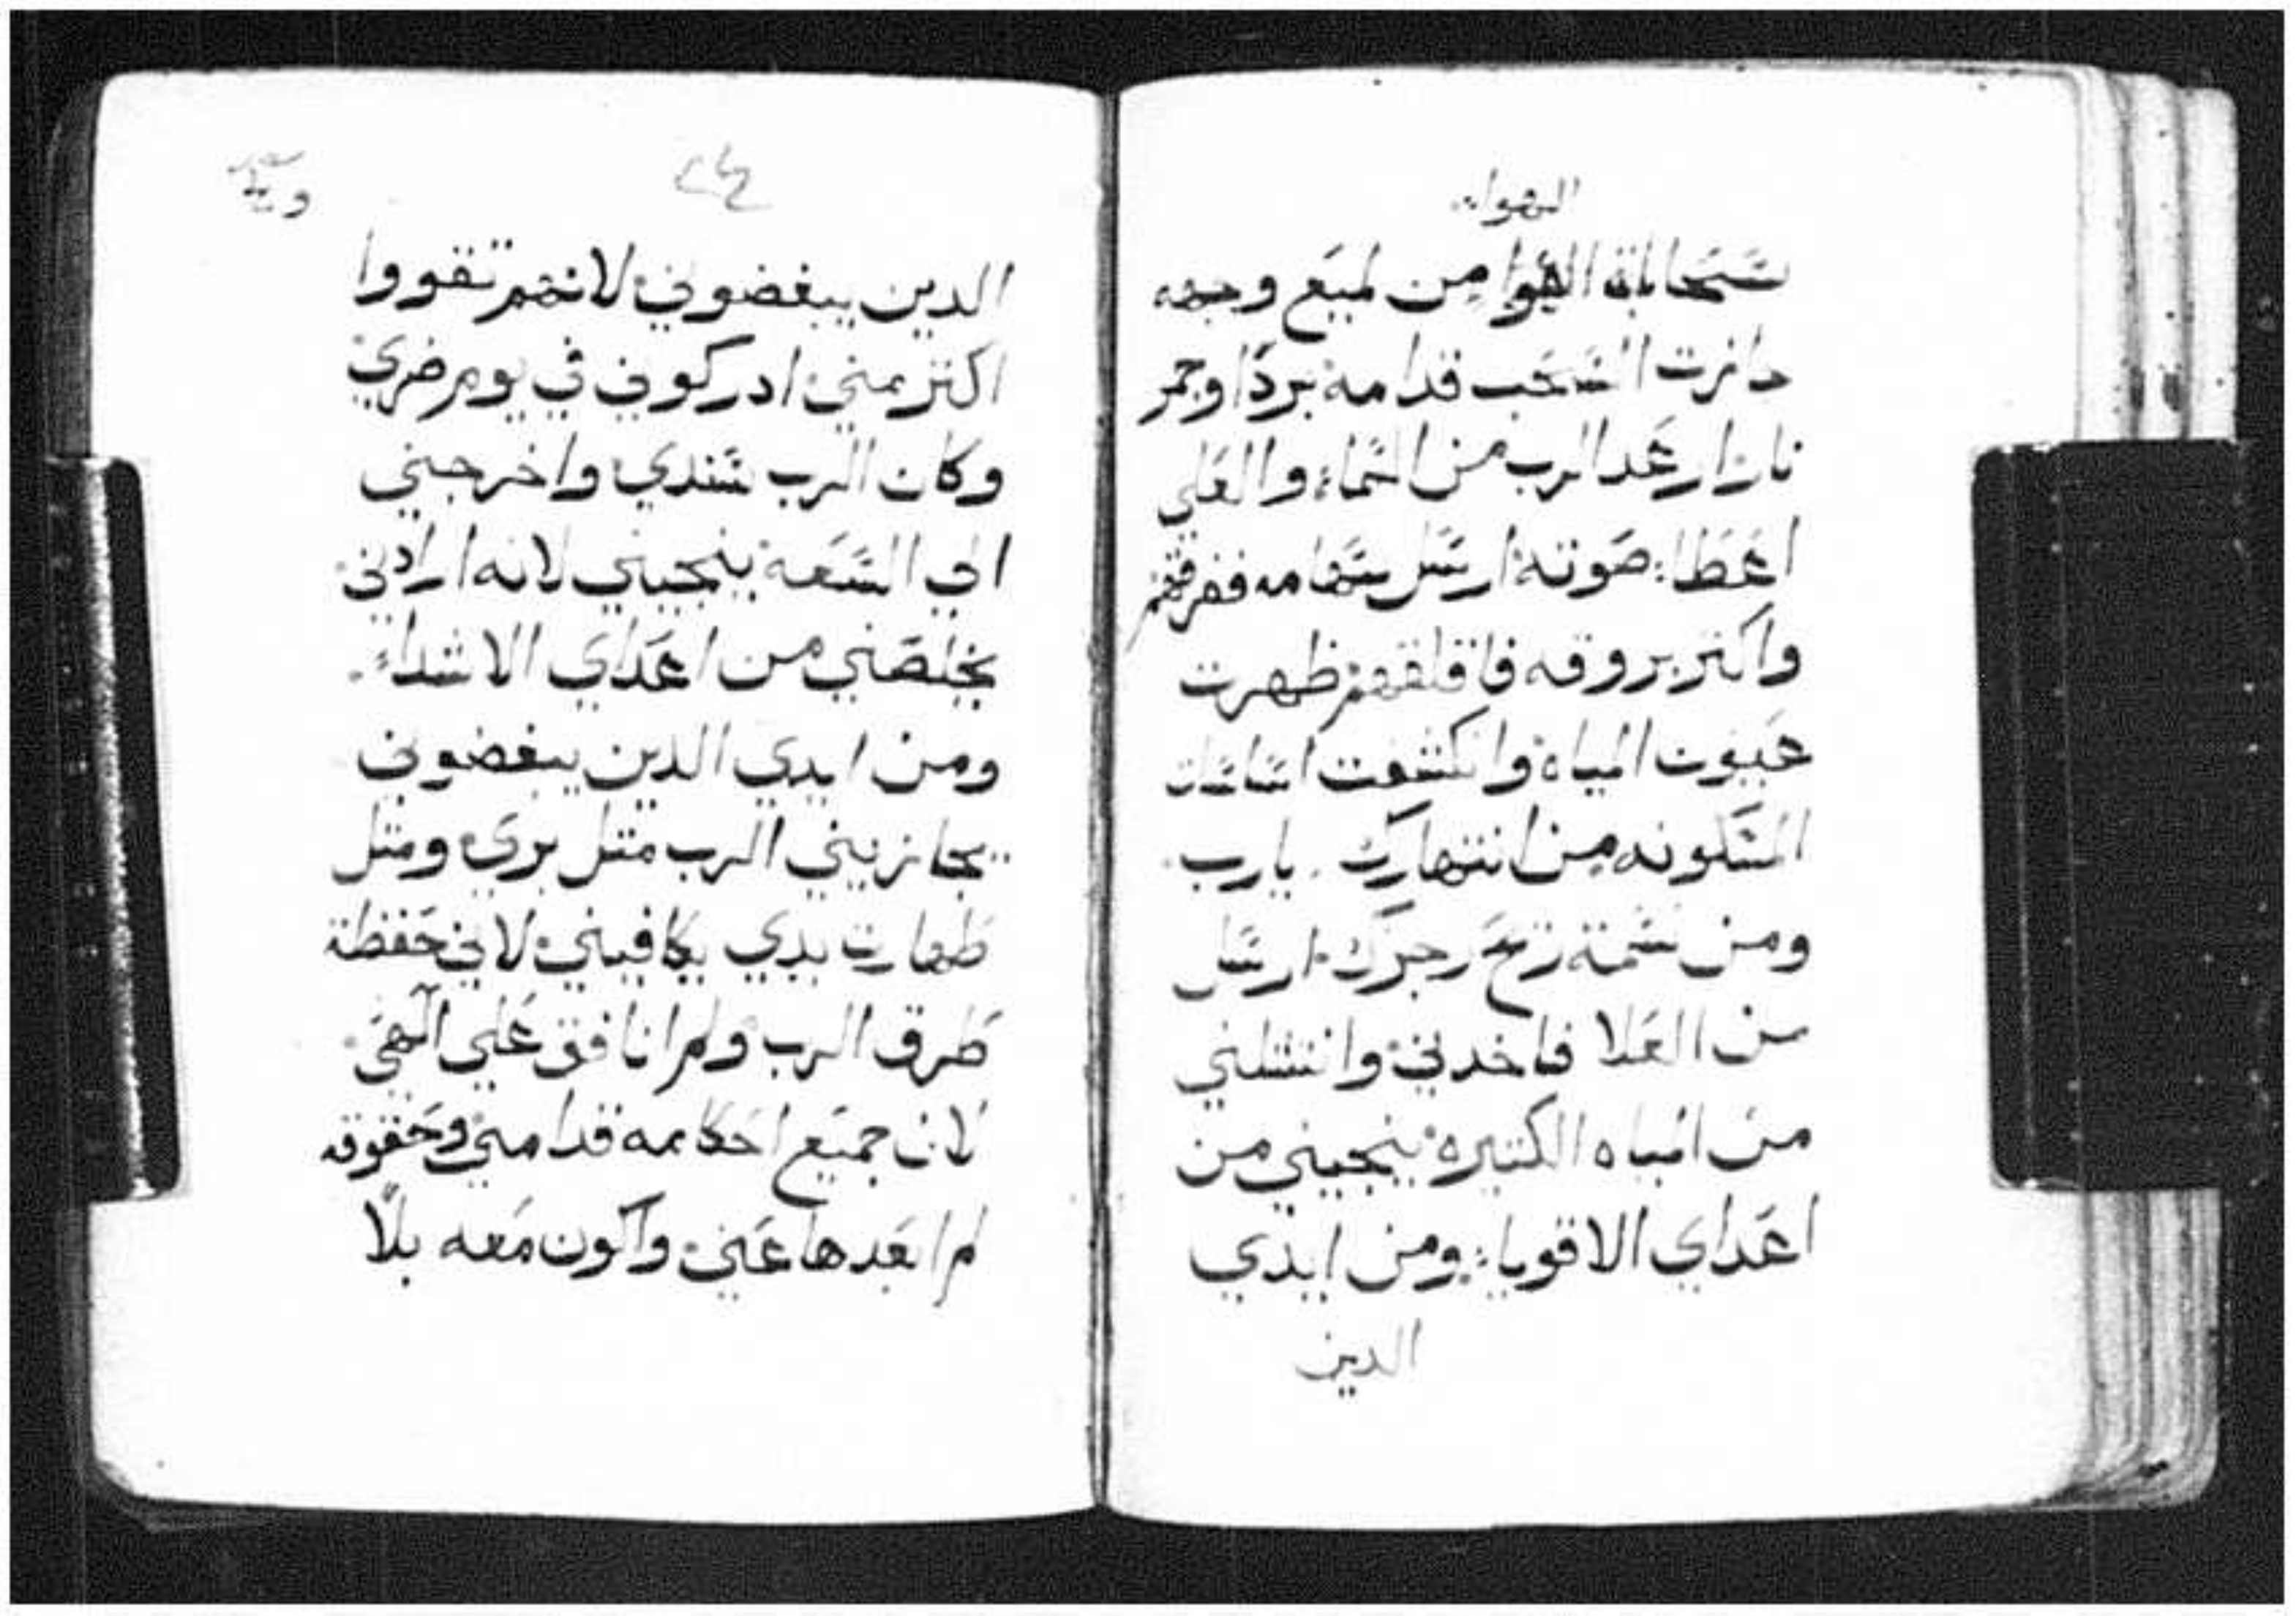 الهواء
سحابة الهوا من لميع وجهه
جازت السحب قدامه بردا وجمر
نار ارعد الرب من السماء والعلي
اعطا صوته ارسل سهامه ففرقهم
واكتر بروقه فاقلقهم ظهرت
عيون المياه وانكشفت اساسات
المسكونه من انتهارك يارب
ومن نسمة ريح رجزك ارسل
من العلا فاخدني وانتشلني
من المياه الكتيره ينجيني من
اعداي الاقوياء ومن ايدي
الدين
الدين يبغضوني لانهم تقووا
اكتر مني ادركوني في يوم ضري
وكان الرب سندي واخرجني
الي السعه ينجيني لانه ارادني
يخلصني من اعداي الاشداء
ومن ايدي الدين يبغضوني
يجازيني الرب متل بري ومتل
طهارت يدي يكافيني لاني حفظة
طرق الرب ولم انافق علي الهي
لان جميع احكامه قدامي وحقوقه
لم ابعدها عني واكون معه بلا